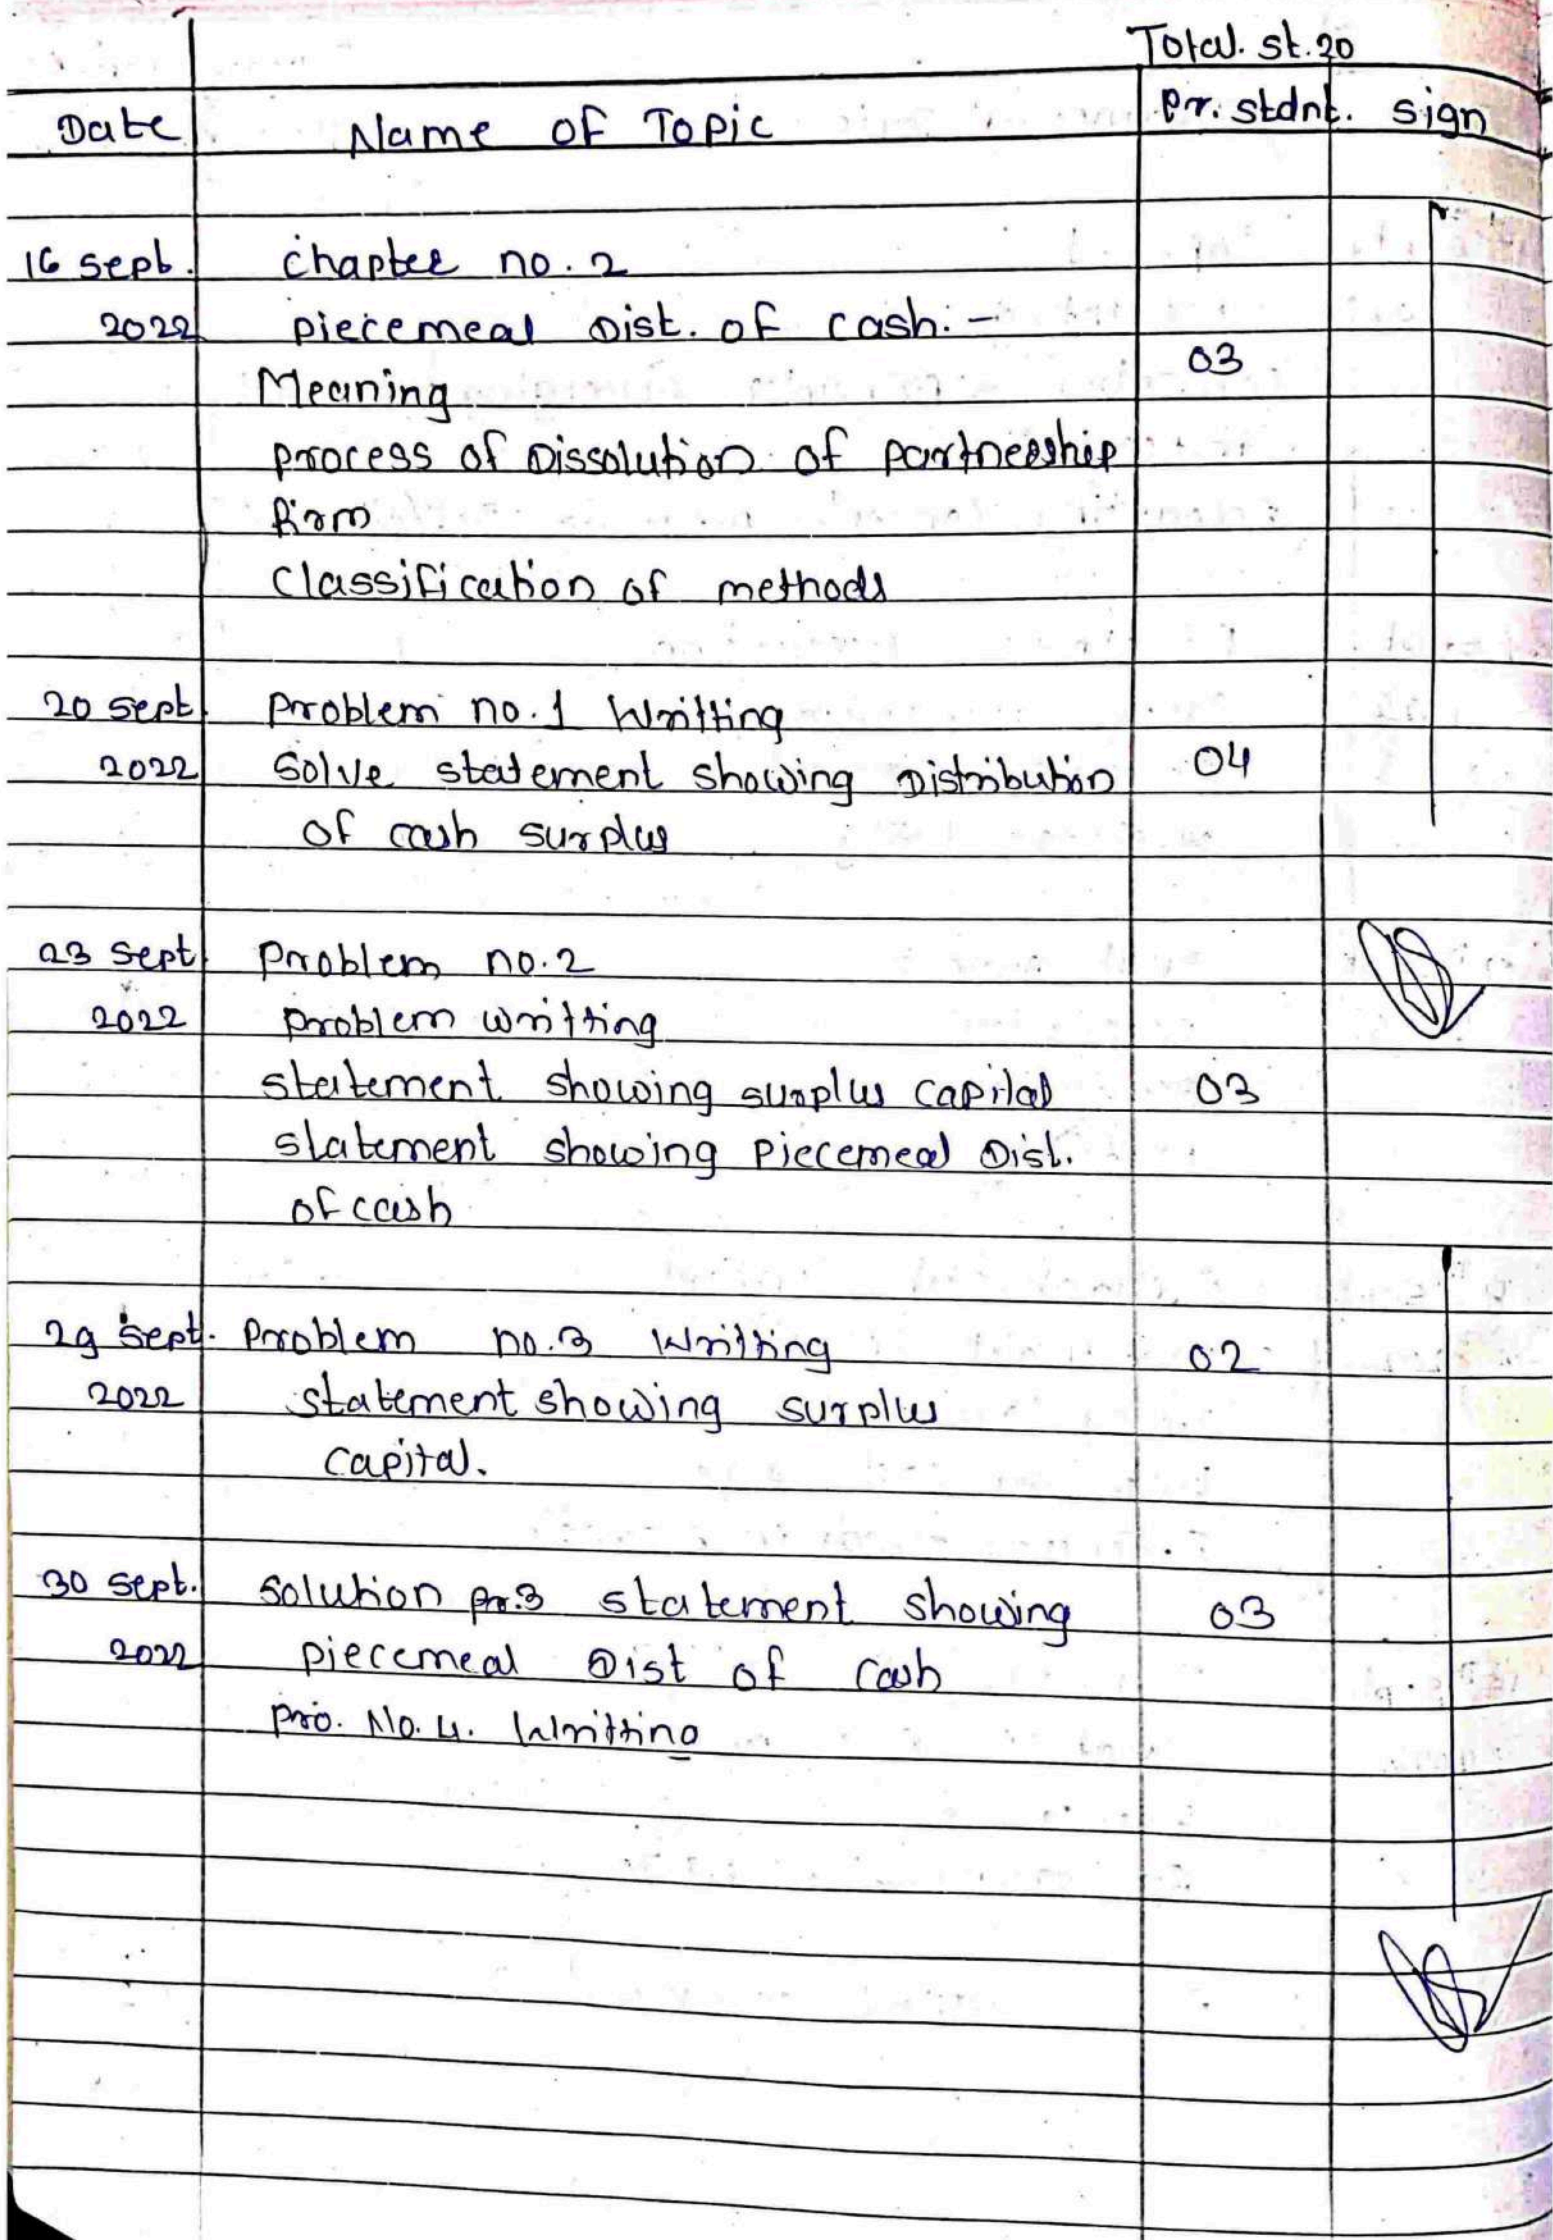 Total. st. 20
Date Name of Topic Pr. stdnt. sign
16 sept. chapter no. 2
2022 piecemeal Dist. of cash. -
03
Meaning
process of Dissolution of partnership
firm
Classification of methods
20 sept Problem no. 1 Writting
2022 Solve statement showing Distribution 04
of cash surplus
23 sept Problem no. 2
2022 problem writting
statement showing surplus capital 03
statement showing piecemeal Dist.
of cash
29 sept. Problem no. 3 Writting 02
2022 statement showing surplus
capital.
30 sept. solution pr. 3 statement showing 03
2022 piecemeal Dist of cash
pro. No. 4. Writting